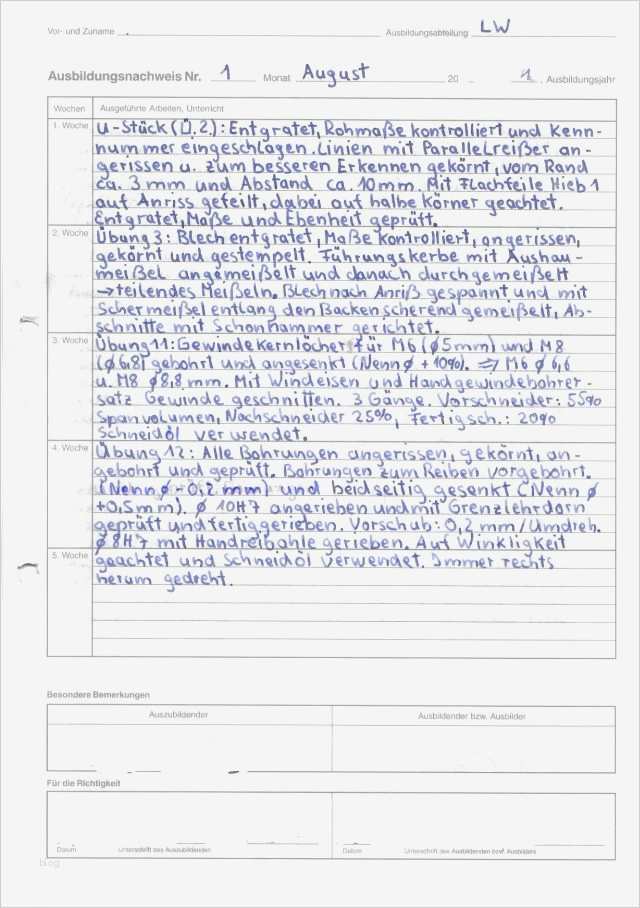 Vor- und Zuname
Ausbildungsabteilung LW
Ausbildungsnachweis Nr. 1 Monat August 20 1. Ausbildungsjahr
Wochen Ausgeführte Arbeiten, Unterricht
1. Woche U-Stück (Ü.2.): Entgratet, Rohmaße kontrolliert und Kenn-
nummer eingeschlagen. Linien mit Parallelreißer an-
gerissen u. zum besseren Erkennen gekörnt, vom Rand
ca. 3mm und Abstand ca. 10mm. Mit Flachfeile Hieb 1
auf Anriss gefeilt, dabei auf halbe Körner geachtet.
Entgratet, Maße und Ebenheit geprüft.
2. Woche Übung 3: Blech entgratet, Maße kontrolliert, angerissen,
gekörnt und gestempelt. Führungskerbe mit Aushau-
meißel angemeißelt und danach durchgemeißelt
→ teilendes Meißeln. Blech nach Anriß gespannt und mit
Schermeißel entlang den Backen scherend gemeißelt, Ab-
schnitte mit Schonhammer gerichtet.
3. Woche Übung 11: Gewindekernlöcher für M6 (ø5mm) und M8
(ø6,8) gebohrt und angesenkt (Nennø + 10%). => M6 ø 6,6
u. M8 ø8,8mm. Mit Windeisen und Handgewindebohrer-
satz Gewinde geschnitten. 3 Gänge. Vorschneider: 55%
Spanvolumen, Nachschneider 25%, Fertigsch.: 20%
Schneidöl verwendet.
4. Woche Übung 12: Alle Bohrungen angerissen, gekörnt, an-
gebohrt und geprüft. Bohrungen zum Reiben vorgebohrt.
(Nennø - 0,2 mm) und beidseitig gesenkt (Nenn ø
+0,5mm). ø 10H7 angerieben und mit Grenzlehrdorn
geprüft und fertiggerieben. Vorschub: 0,2 mm/Umdreh.
ø 8H7 mit Handreibahle gerieben. Auf Winkligkeit
5. Woche geachtet und Schneidöl verwendet. Immer rechts
herum gedreht.
Besondere Bemerkungen
Auszubildender Ausbildender bzw. Ausbilder
Für die Richtigkeit
Datum Unterschrift des Auszubildenden Datum Unterschrift des Ausbildenden bzw. Ausbilders
blog